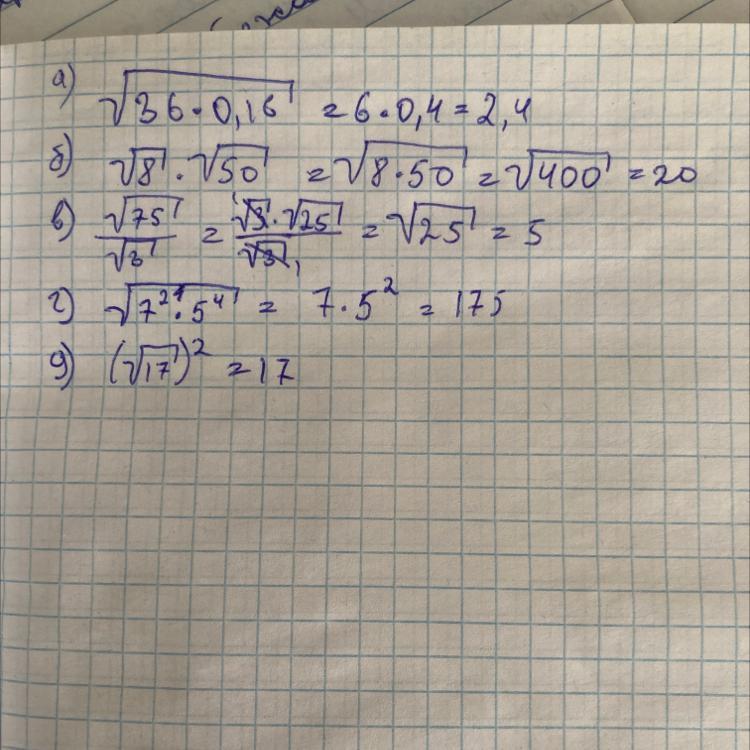 а) √36·0,16 = 6·0,4 = 2,4
б) √8 · √50 = √8·50 = √400 = 20
в) √75/√3 = √3·√25/√3 = √25 = 5
г) √7²·5⁴ = 7·5² = 175
д) (√17)² = 17